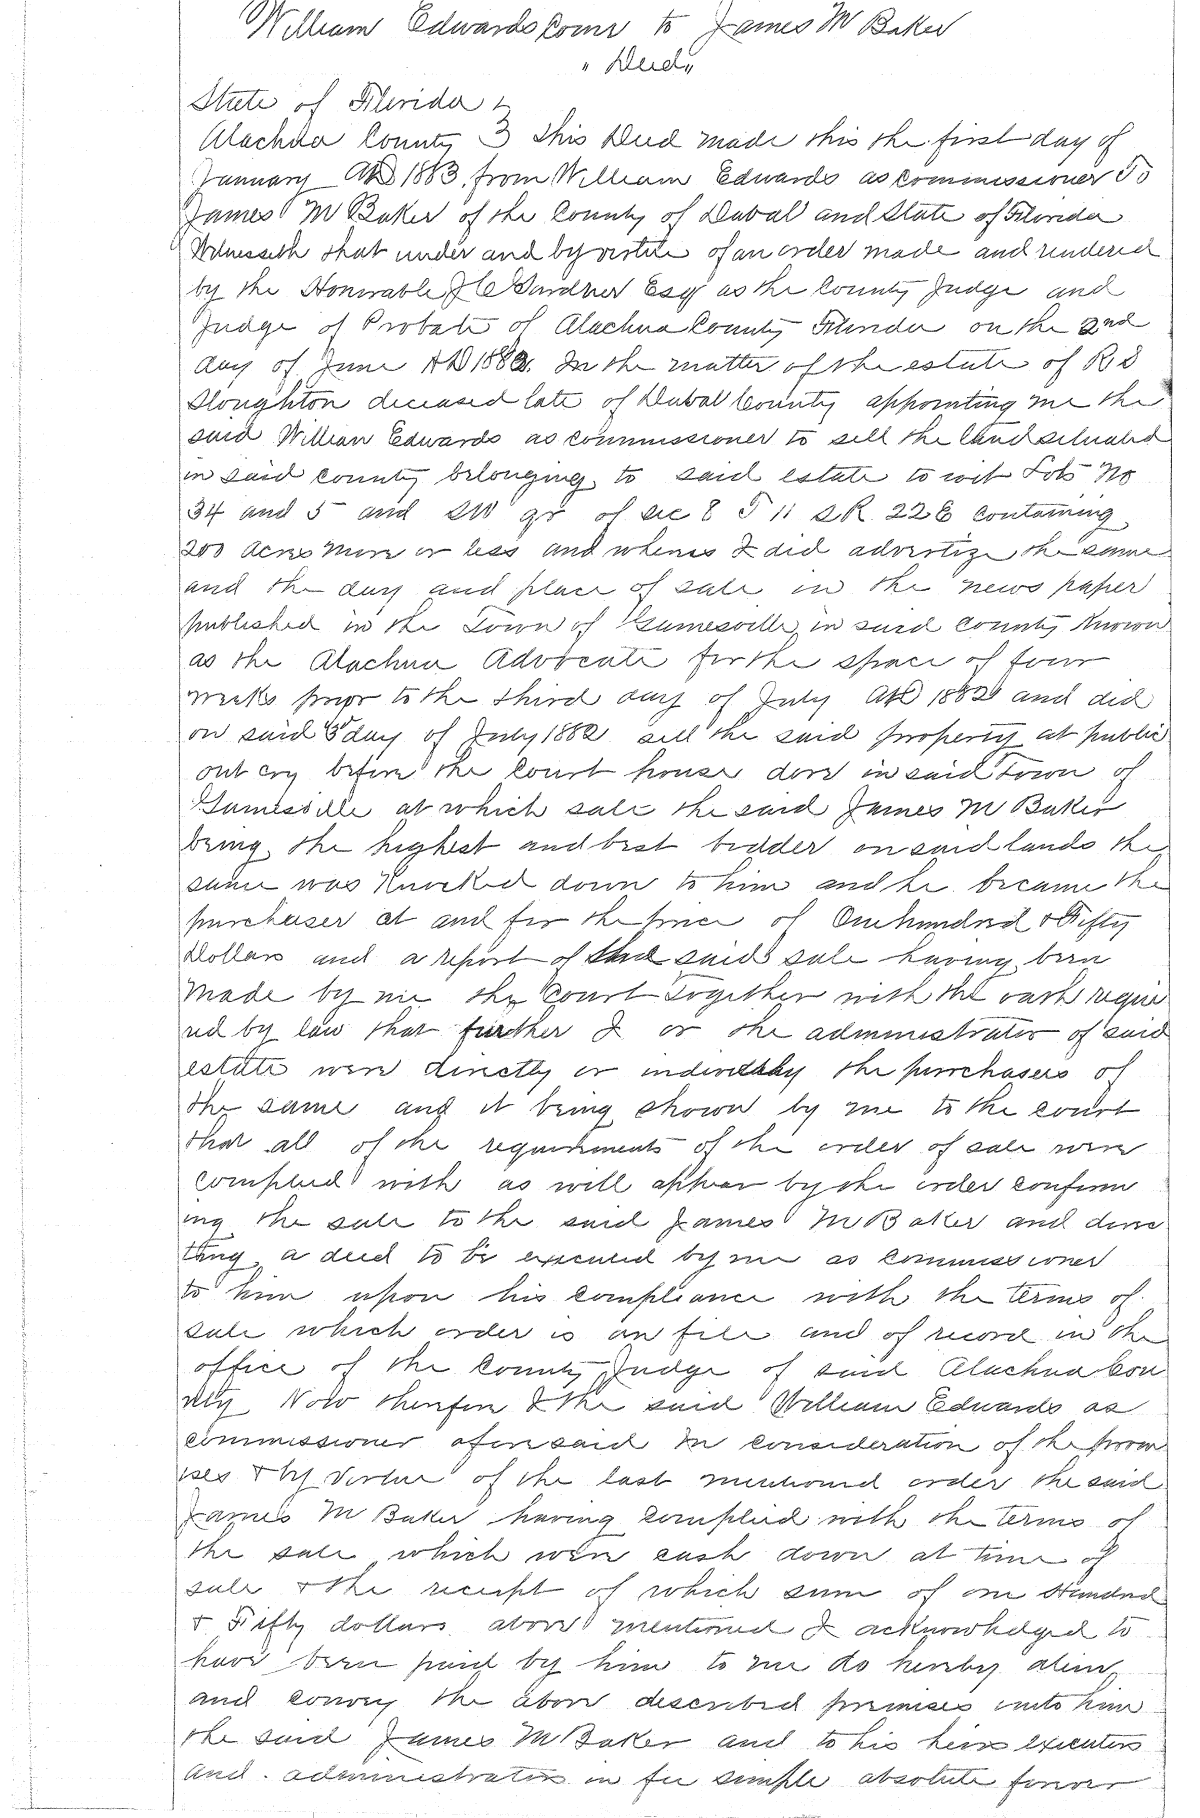 William Edwards Comr to James M Baker
"Deed"
State of Florida
Alachua County } This Deed made this the first day of
January AD 1883, from William Edwards as Commissioner To
James M Baker of the County of Duval and State of Florida
Witnesseth that under and by virtue of an order made and rendered
by the Honorable J C Gardner Esqr as the County Judge and
Judge of Probate of Alachua County Florida on the 2nd
day of June AD 1882. In the matter of the estate of R S
Sloughton deceased late of Duval County appointing me the
said William Edwards as commissioner to sell the land situated
in said County belonging to said estate to wit Lots No
34 and 5 and SW qr of Sec 8 T 11 S R 22 E containing
200 acres more or less and whereas I did advertize the same
and the day and place of sale in the news paper
published in the Town of Gainesville in said County Known
as the Alachua Advocate for the space of four
weeks prior to the third day of July AD 1882 and did
on said 3rd day of July 1882 sell the said property at public
out cry before the Court house door in said Town of
Gainesville at which sale the said James M Baker
being the highest and best bidder on said lands the
same was Knocked down to him and he became the
purchaser at and for the price of One hundred & Fifty
Dollars and a report of said sale having been
made by me the Court Together with the oath requi
red by law that further I or the administrator of said
estate were directly or indirectly the purchasers of
the same and it being shown by me to the court
that all of the requirements of the order of sale were
complied with as will appear by the order confirm
ing the sale to the said James M Baker and direc
ting a deed to be executed by me as commissioner
to him upon his compliance with the terms of
sale which order is on file and of record in the
office of the County Judge of said Alachua Cou
nty Now therefore I the said William Edwards as
commissioner aforesaid In consideration of the prem
ises & by virtue of the last mentioned order the said
James M Baker having complied with the terms of
the sale which were cash down at time of
sale & the receipt of which sum of one Hundred
& Fifty dollars above mentioned I acknowledged to
have been paid by him to me do hereby alien
and convey the above described premises unto him
the said James M Baker and to his heirs executors
and administrators in fee simple absolute forever